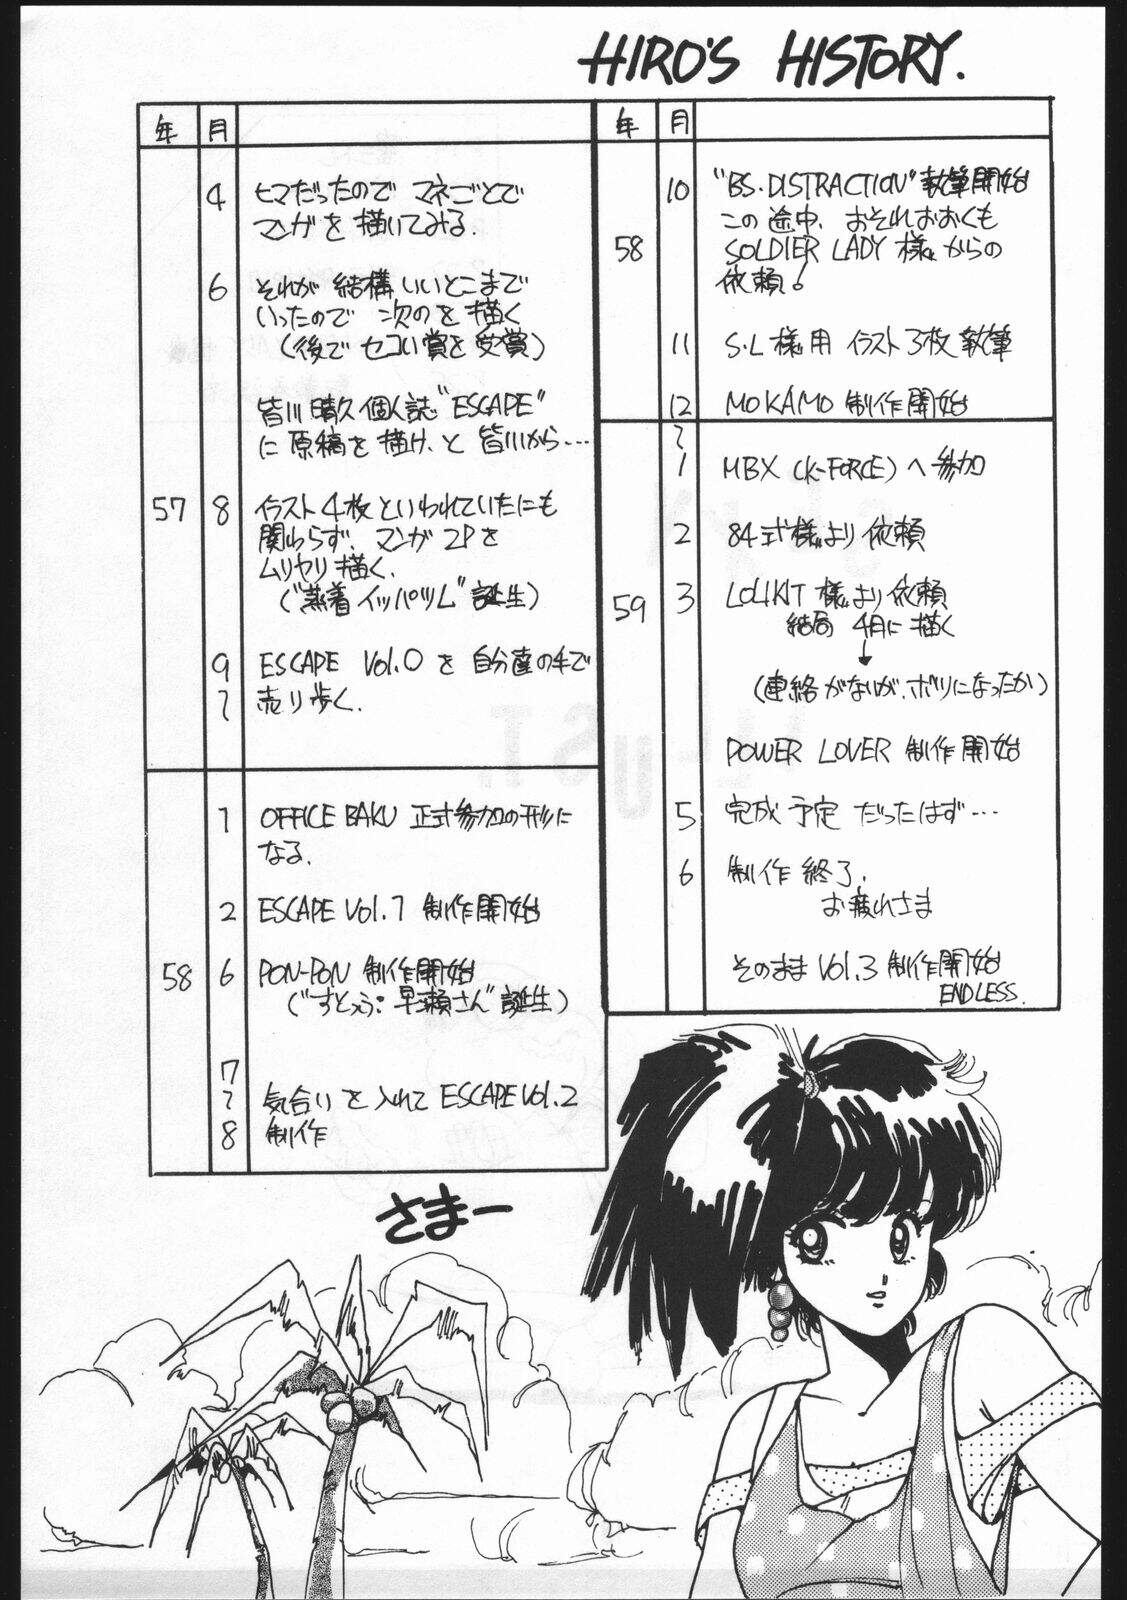 HIRO'S HISTORY.
年 月
4 ヒマだったので マネごとで
マンガを描いてみる.
6 それが 結構いいとこまで
いったので 次のを描く
(後でセコい賞を受賞)
皆川晴久個人誌"ESCAPE"
に原稿を描け、と 皆川から…
57 8 イラスト4枚といわれていたにも
関わらず、マンガ2Pを
ムリヤリ描く.
("蒸着イッパツム"誕生)
9 ESCAPE Vol.0 を 自分達の手で
〜 売り歩く.
1 OFFICE BAKU 正式参加の形に
なる.
2 ESCAPE Vol.1 制作開始
58 6 PON-PON 制作開始
("すとっぷ 早瀬さん"誕生)
7
〜 気合いを入れて ESCAPE Vol.2
8 制作
年 月
10 "BS・DISTRACTION"執筆開始
この途中、おそれおおくも
58 SOLDIER LADY 様からの
依頼!
11 S・L様用 イラスト3枚執筆
12 MOKAMO 制作開始
〜
1 MBX (K-FORCE)へ参加
2 84式様より依頼
59 3 LOLIKIT 様より依頼
結局 4月に描く
↓
(連絡がないが、ボツになったか)
POWER LOVER 制作開始
5 完成予定 だったはず…
6 制作終了.
お疲れさま
そのまま Vol.3 制作開始
ENDLESS.
さまー